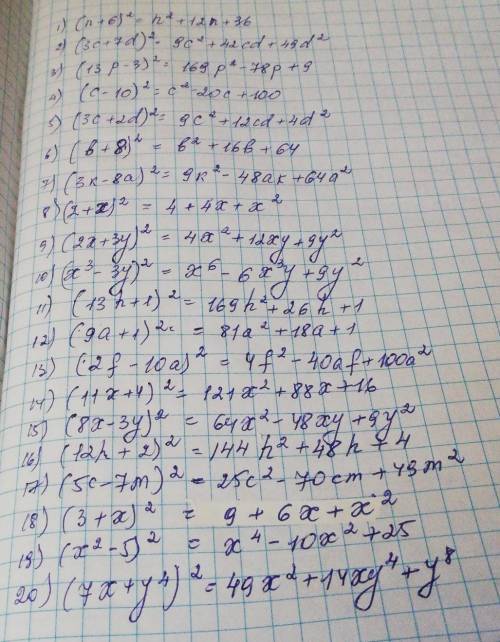 1) (n+6)² = n²+12n+36
2) (3c+7d)² = 9c²+42cd+49d²
3) (13p-3)² = 169p²-78p+9
4) (c-10)² = c²-20c+100
5) (3c+2d)² = 9c²+12cd+4d²
6) (b+8)² = b²+16b+64
7) (3k-8a)² = 9k²-48ak+64a²
8) (2+x)² = 4+4x+x²
9) (2x+3y)² = 4x²+12xy+9y²
10) (x³-3y)² = x⁶-6x³y+9y²
11) (13h+1)² = 169h²+26h+1
12) (9a+1)² = 81a²+18a+1
13) (2f-10a)² = 4f²-40af+100a²
14) (11x+4)² = 121x²+88x+16
15) (8x-3y)² = 64x²-48xy+9y²
16) (12h+2)² = 144h²+48h+4
17) (5c-7m)² = 25c²-70cm+49m²
18) (3+x)² = 9+6x+x²
19) (x²-5)² = x⁴-10x²+25
20) (7x+y⁴)² = 49x²+14xy⁴+y⁸